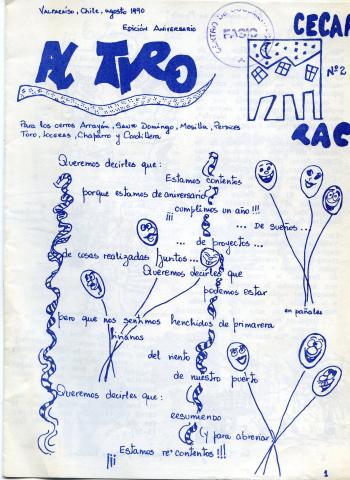 Valparaíso, Chile, agosto 1990
Edición Aniversario
CECAP
FASIC
AL TIRO
Nº 2
RAC
Para los cerros Arrayán, Santo Domingo, Mesilla, Perdices
Toro, Loceras, Chaparro y Cordillera
Queremos decirles que:
Estamos contentos
porque estamos de aniversario
¡¡¡ cumplimos un año !!!
... de sueños ...
... de proyectos ...
de cosas realizadas juntos ...
Queremos decirles que
podemos estar
en pañales
pero que nos sentimos henchidos de primavera
del viento
de nuestro puerto
Queremos decirles que:
resumiendo
(y para abreviar
¡¡¡ Estamos re' contentos !!!
1